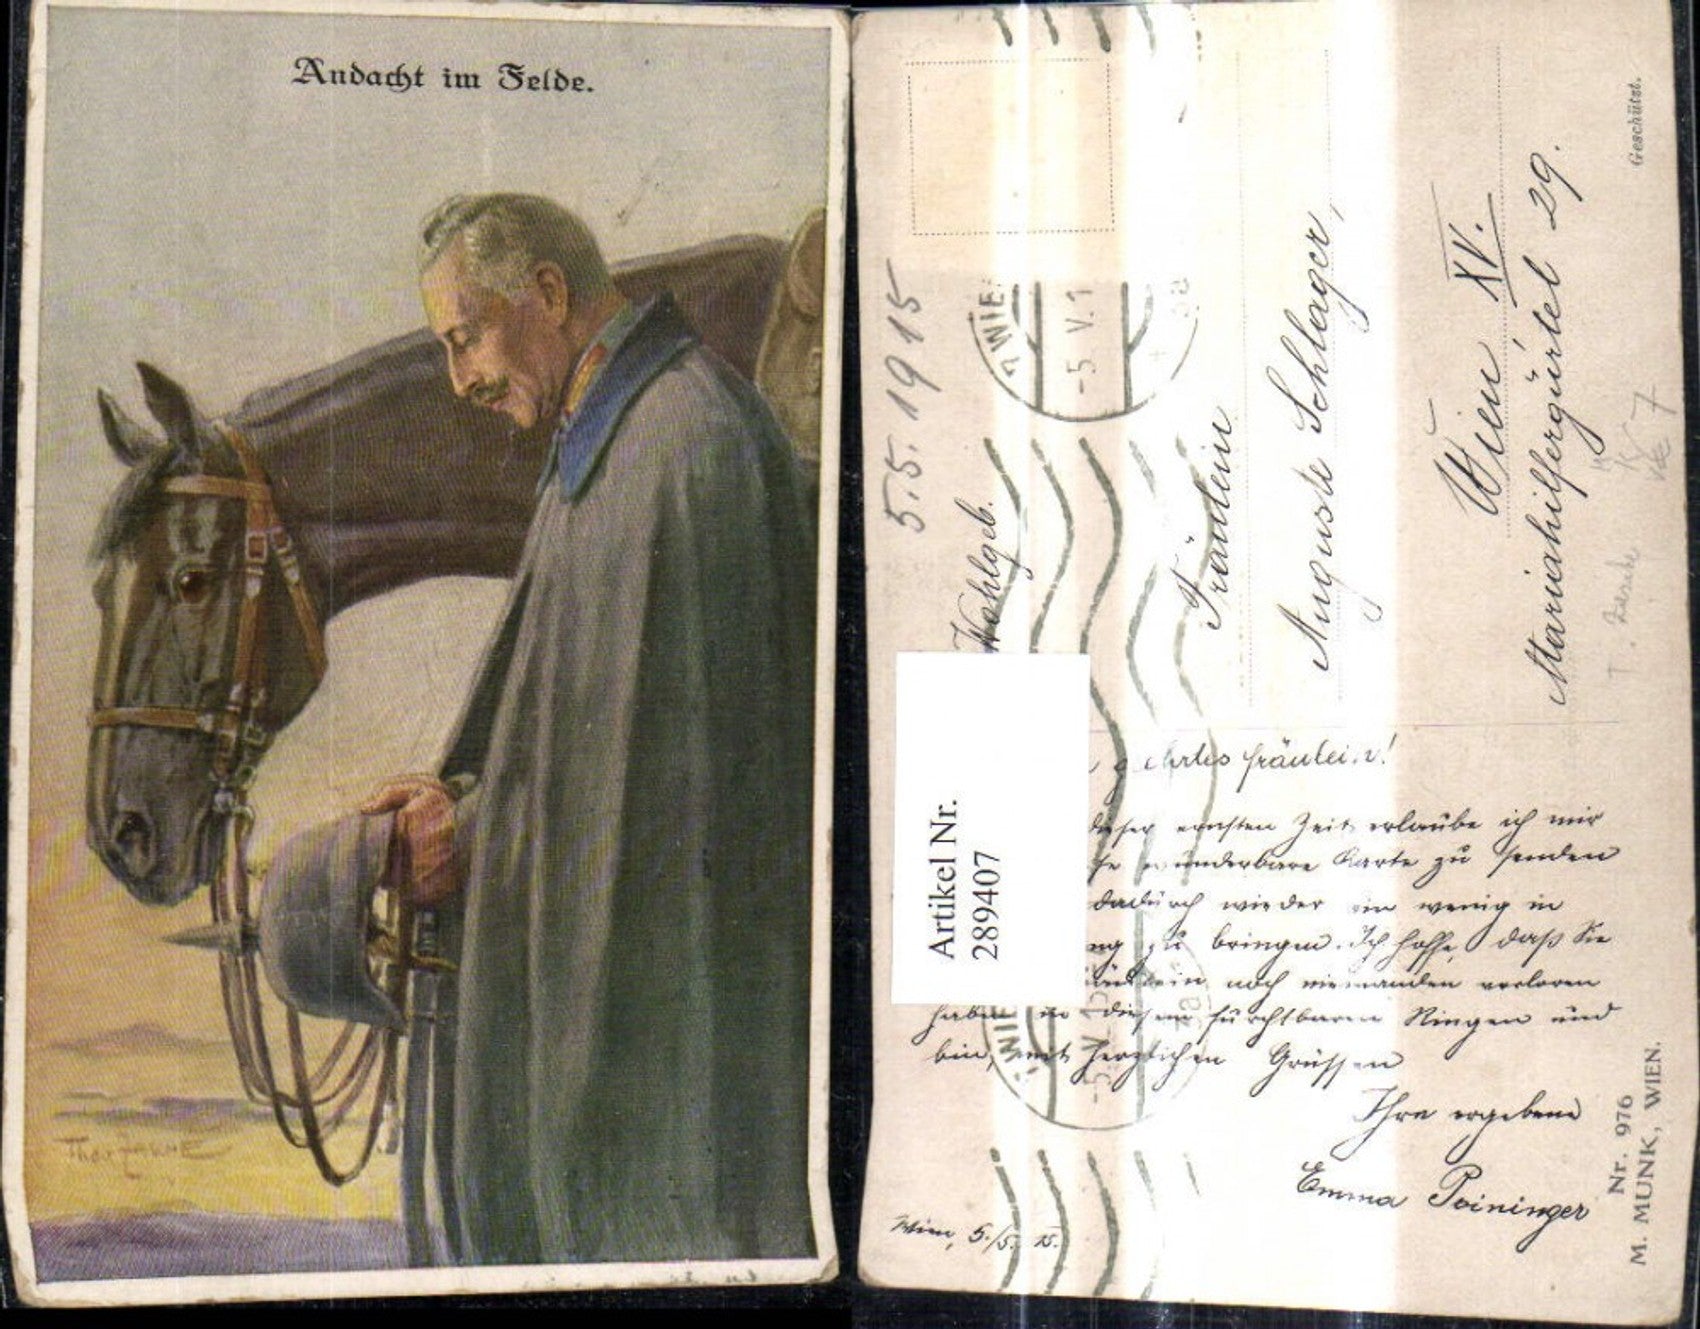 Andacht im Felde.
5.5.1915
WIEN
-5.V.1
Wohlgeb.
Fräulein
Auguste Schlager,
Wien XV.
Mariahilfergürtel 29.
Geschützt.
Artikel Nr.
289407
gehrtes Fräulein!
dieser ernsten Zeit erlaube ich mir
wunderbare Karte zu senden
dadurch wieder ein wenig in
ng zu bringen. Ich hoffe, daß Sie
Fräulein noch niemanden verloren
haben in diesem furchtbaren Ringen und
bin, mit herzlichen Grüssen
Ihre ergebene
Emma Poininger
Wien, 5./5. 15.
WIEN
-5.V.1
Nr. 976
M. MUNK, WIEN.